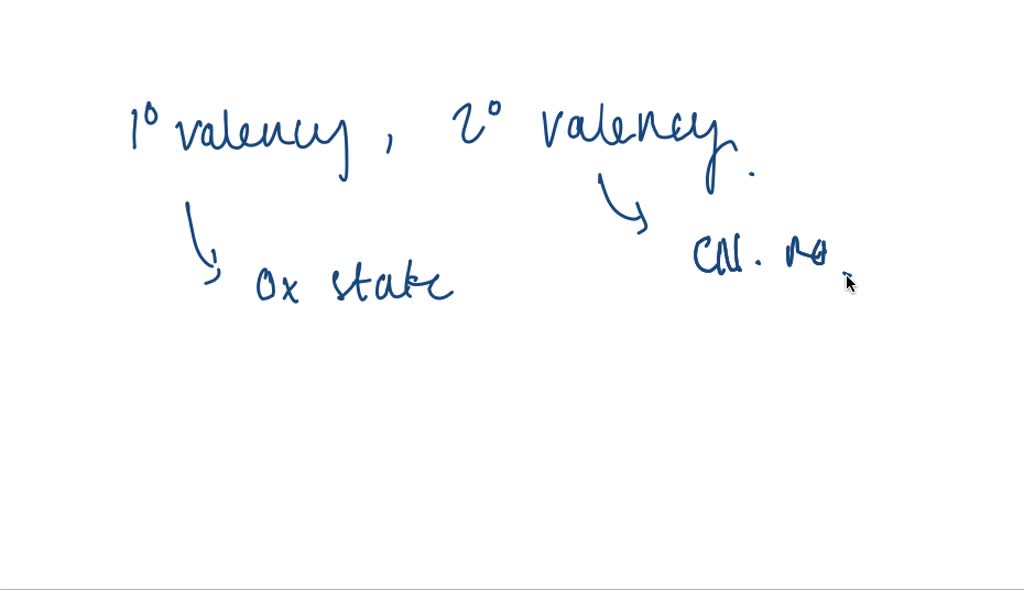 1° valency, 2° valency.
Ox state
CN. no.